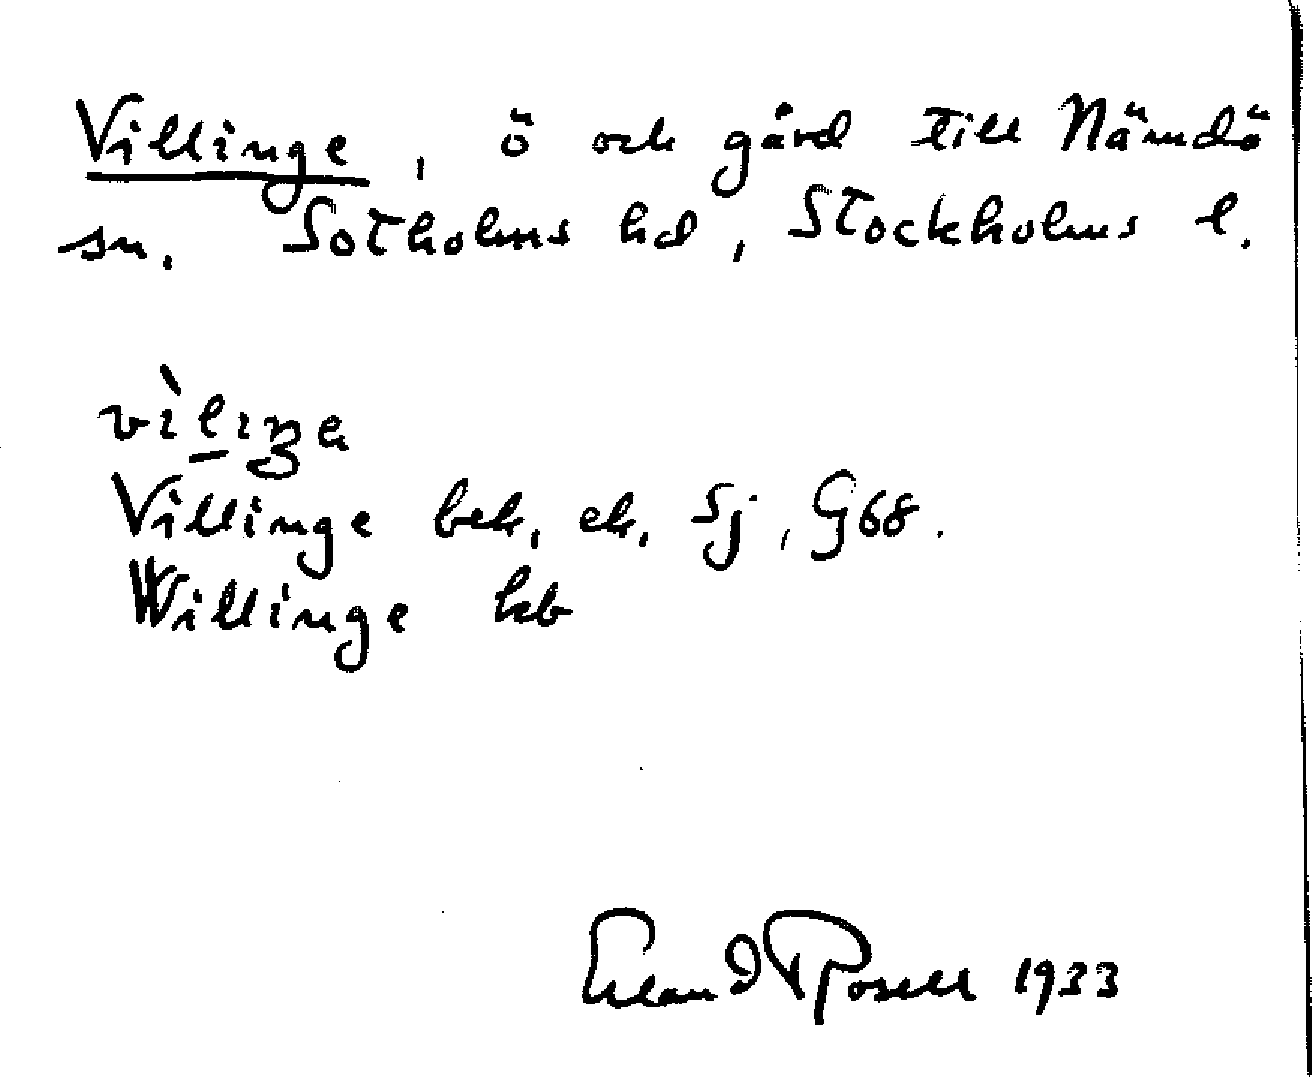 Villinge, ö och gård till Nämdö
sn. Sotholms hd, Stockholms l.
Villinge bek, ek, Sj, G68.
Willinge kb
Erland Rosell 1933